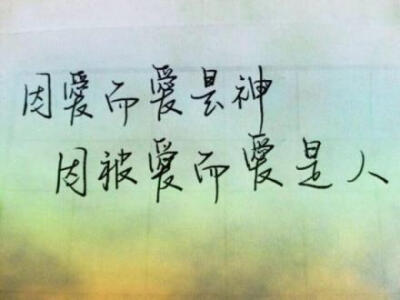 因愛而愛是神
因被愛而愛是人